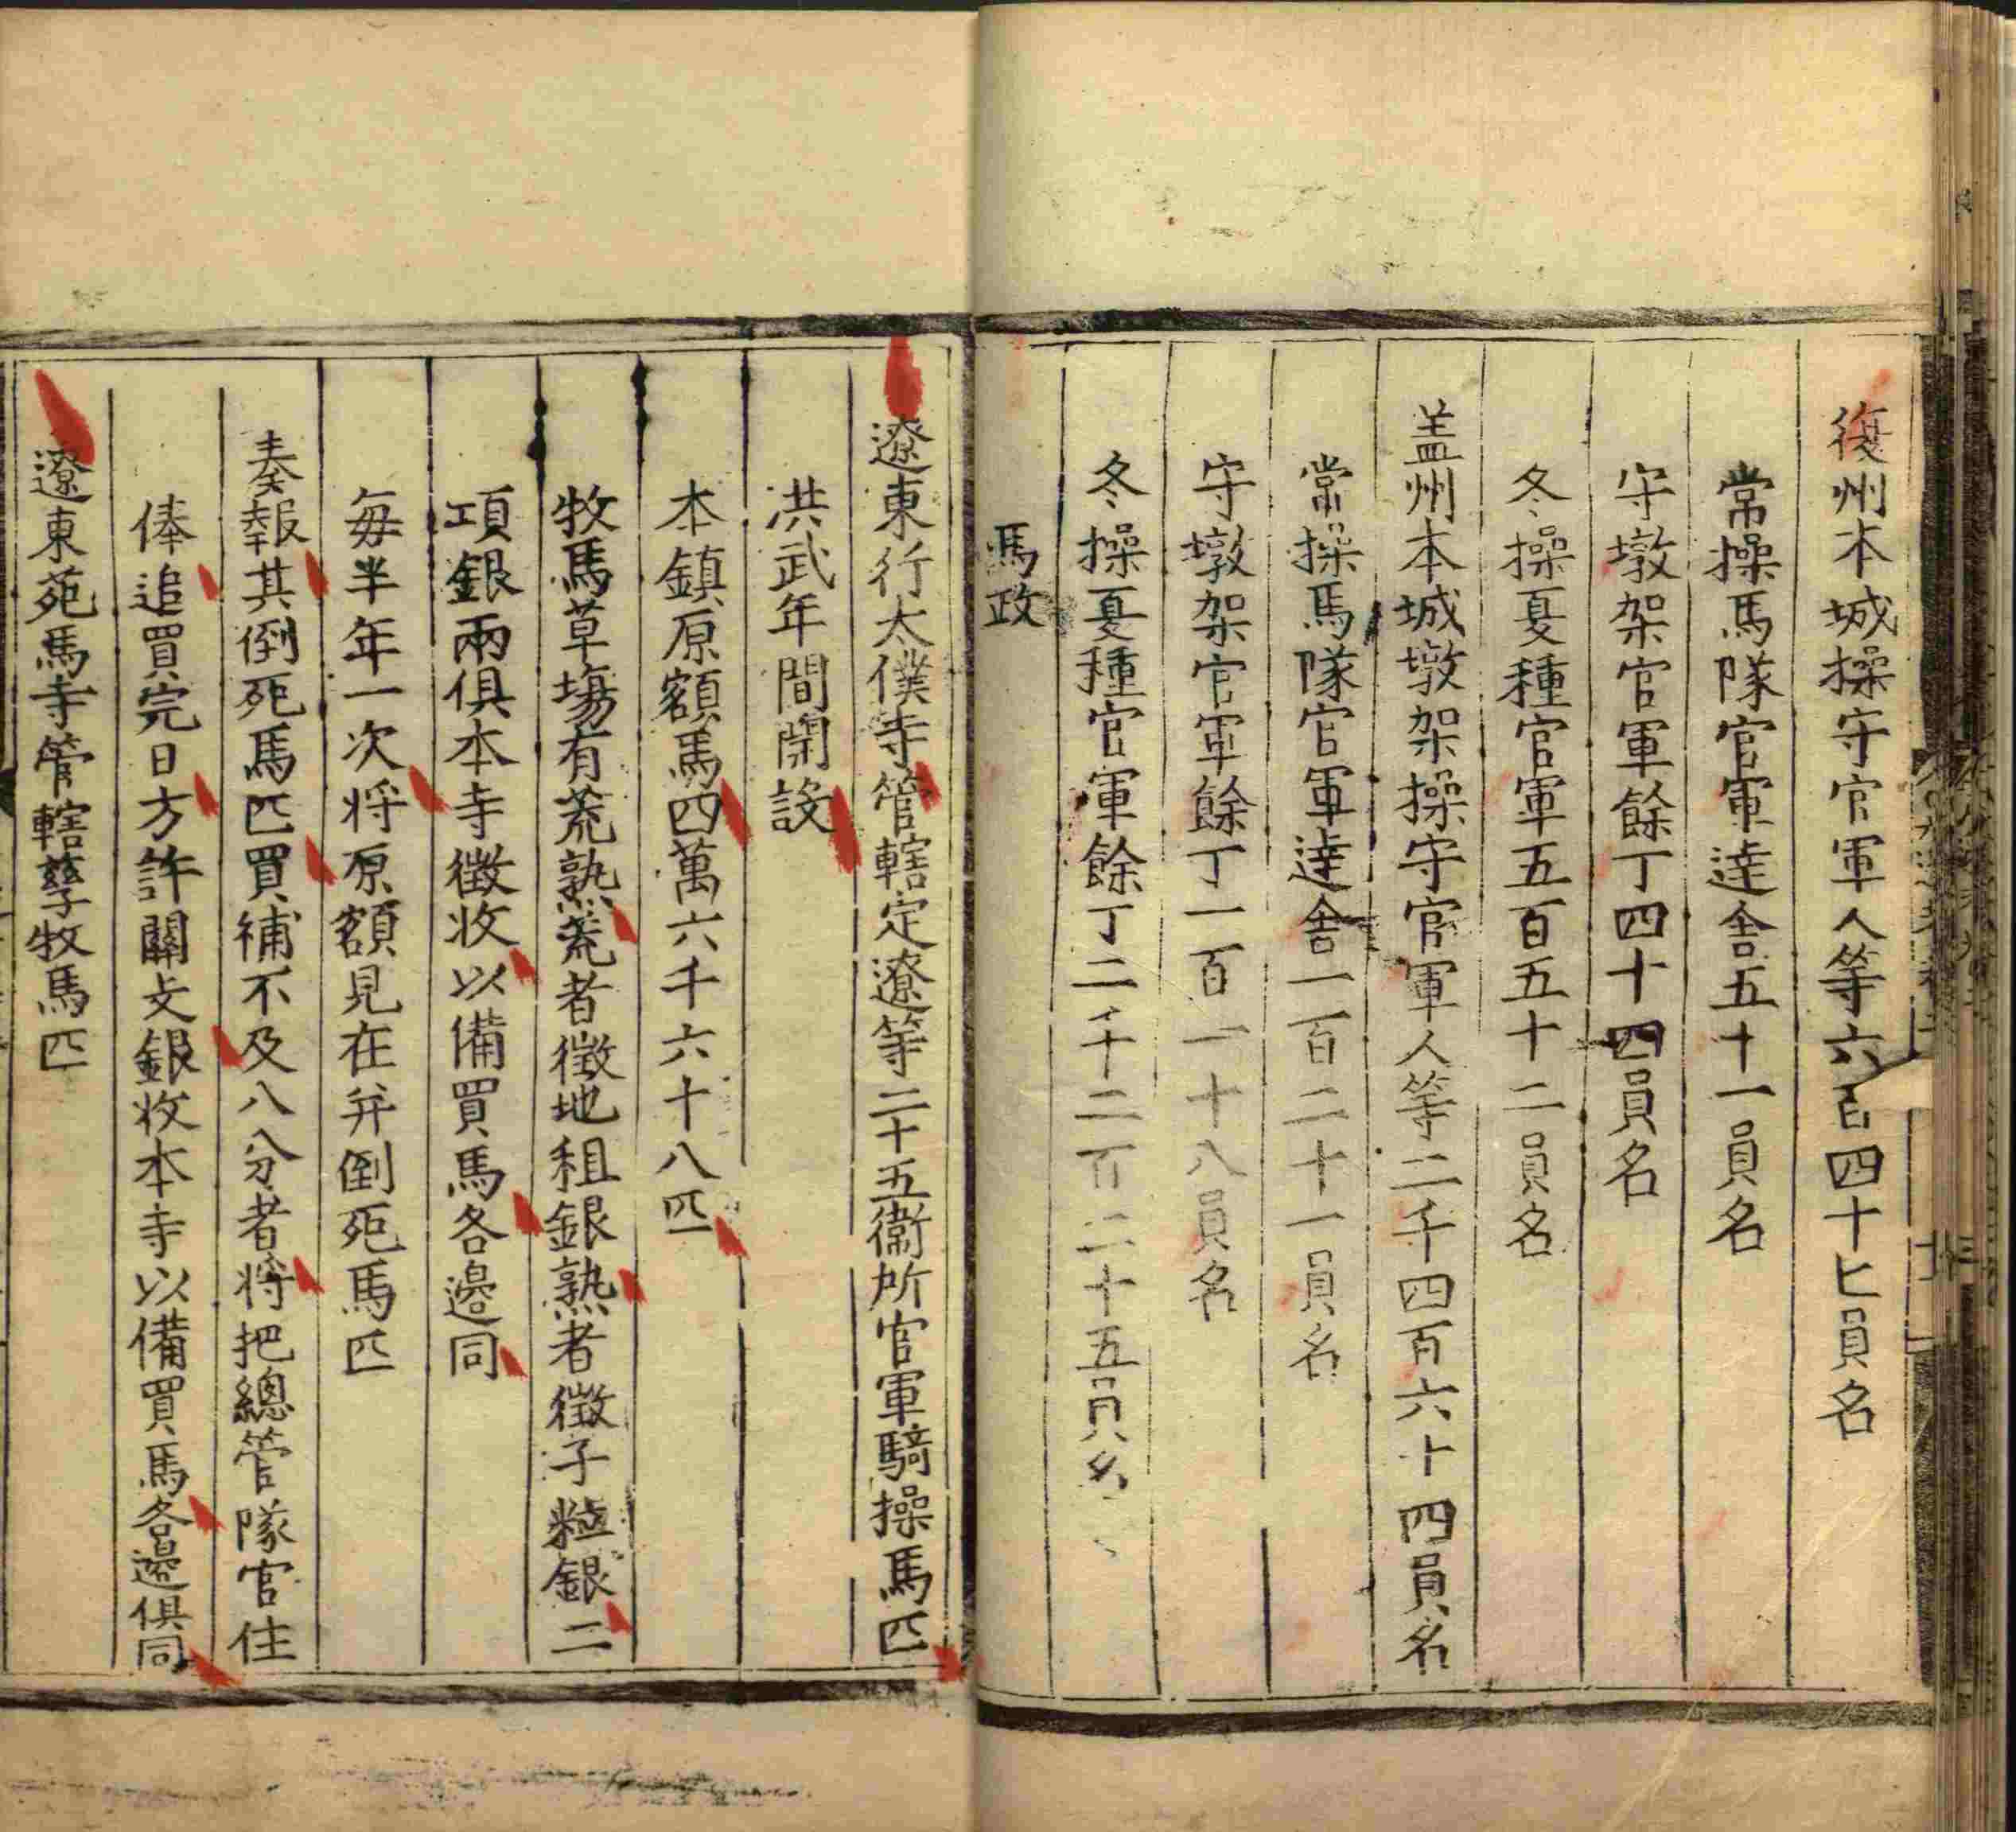 復州本城操守官軍人等六百四十七員名
常操馬隊官軍達舎五十一員名
守墩架官軍餘丁四十四員名
冬操夏種官軍五百五十二員名
盖州本城墩架操守官軍人等二千四百六十四員名
常操馬隊官軍達舎一百二十一員名
守墩架官軍餘丁一百一十八員名
冬操夏種官軍餘丁二千二百二十五員名
馬政
遼東行太僕寺管轄定遼等二十五衞所官軍騎操馬匹
洪武年間開設
本鎮原額馬四萬六千六十八匹
牧馬草塲有荒熟荒者徴地租銀熟者徴子粒銀二
項銀兩俱本寺徴收以備買馬各邉同
每半年一次将原額見在并倒死馬匹
奏報其倒死馬匹買補不及八分者将把總管隊官住
俸追買完日方許關支銀收本寺以備買馬各邉俱同
遼東苑馬寺管轄孳牧馬匹